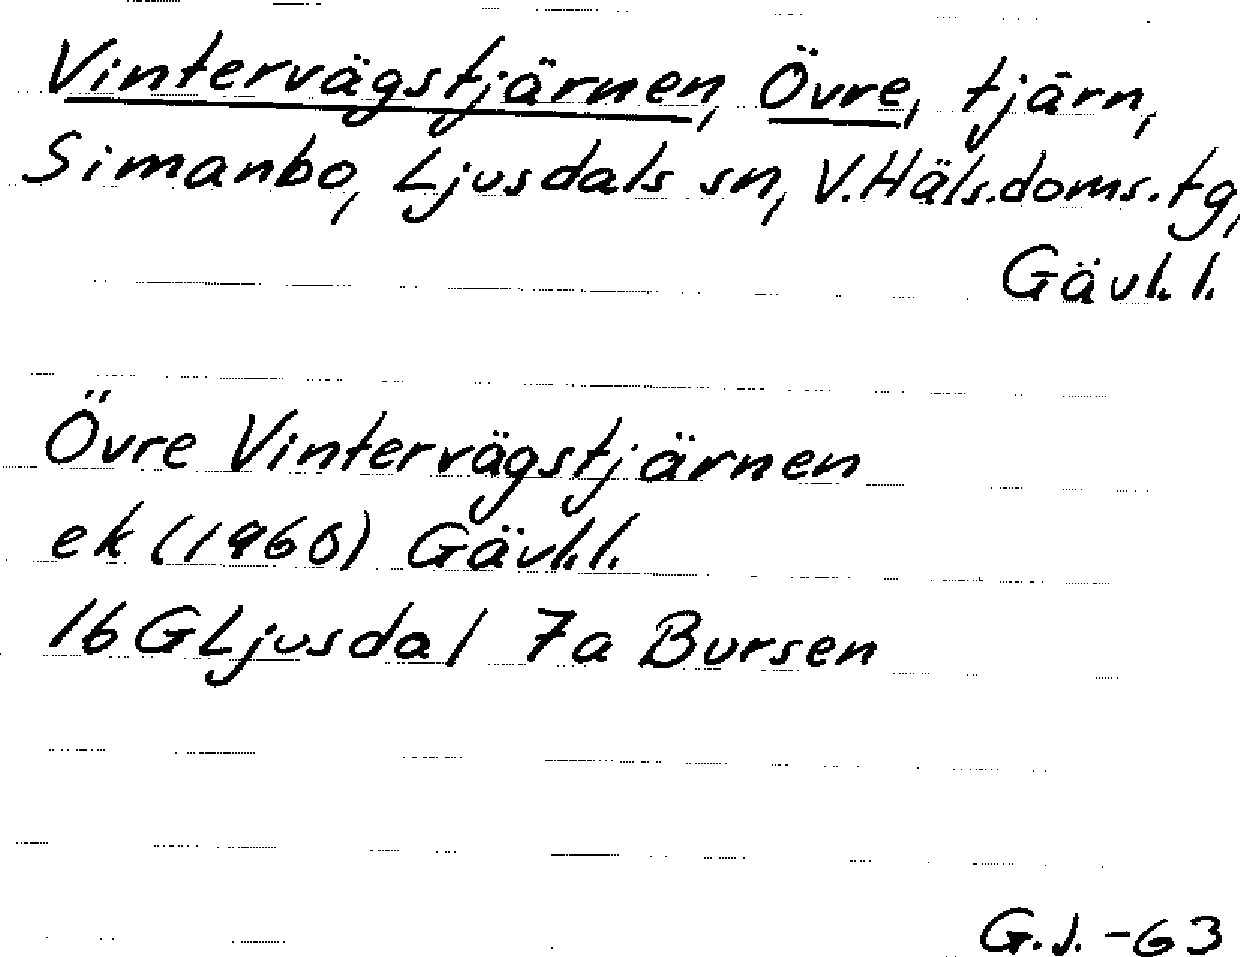 Vintervägstjärnen, Övre, tjärn,
Simanbo, Ljusdals sn, V.Häls.doms.tg,
Gävl.l.
Övre Vintervägstjärnen
ek (1960) Gävl.l.
16G Ljusdal 7a Bursen
G.J. -63